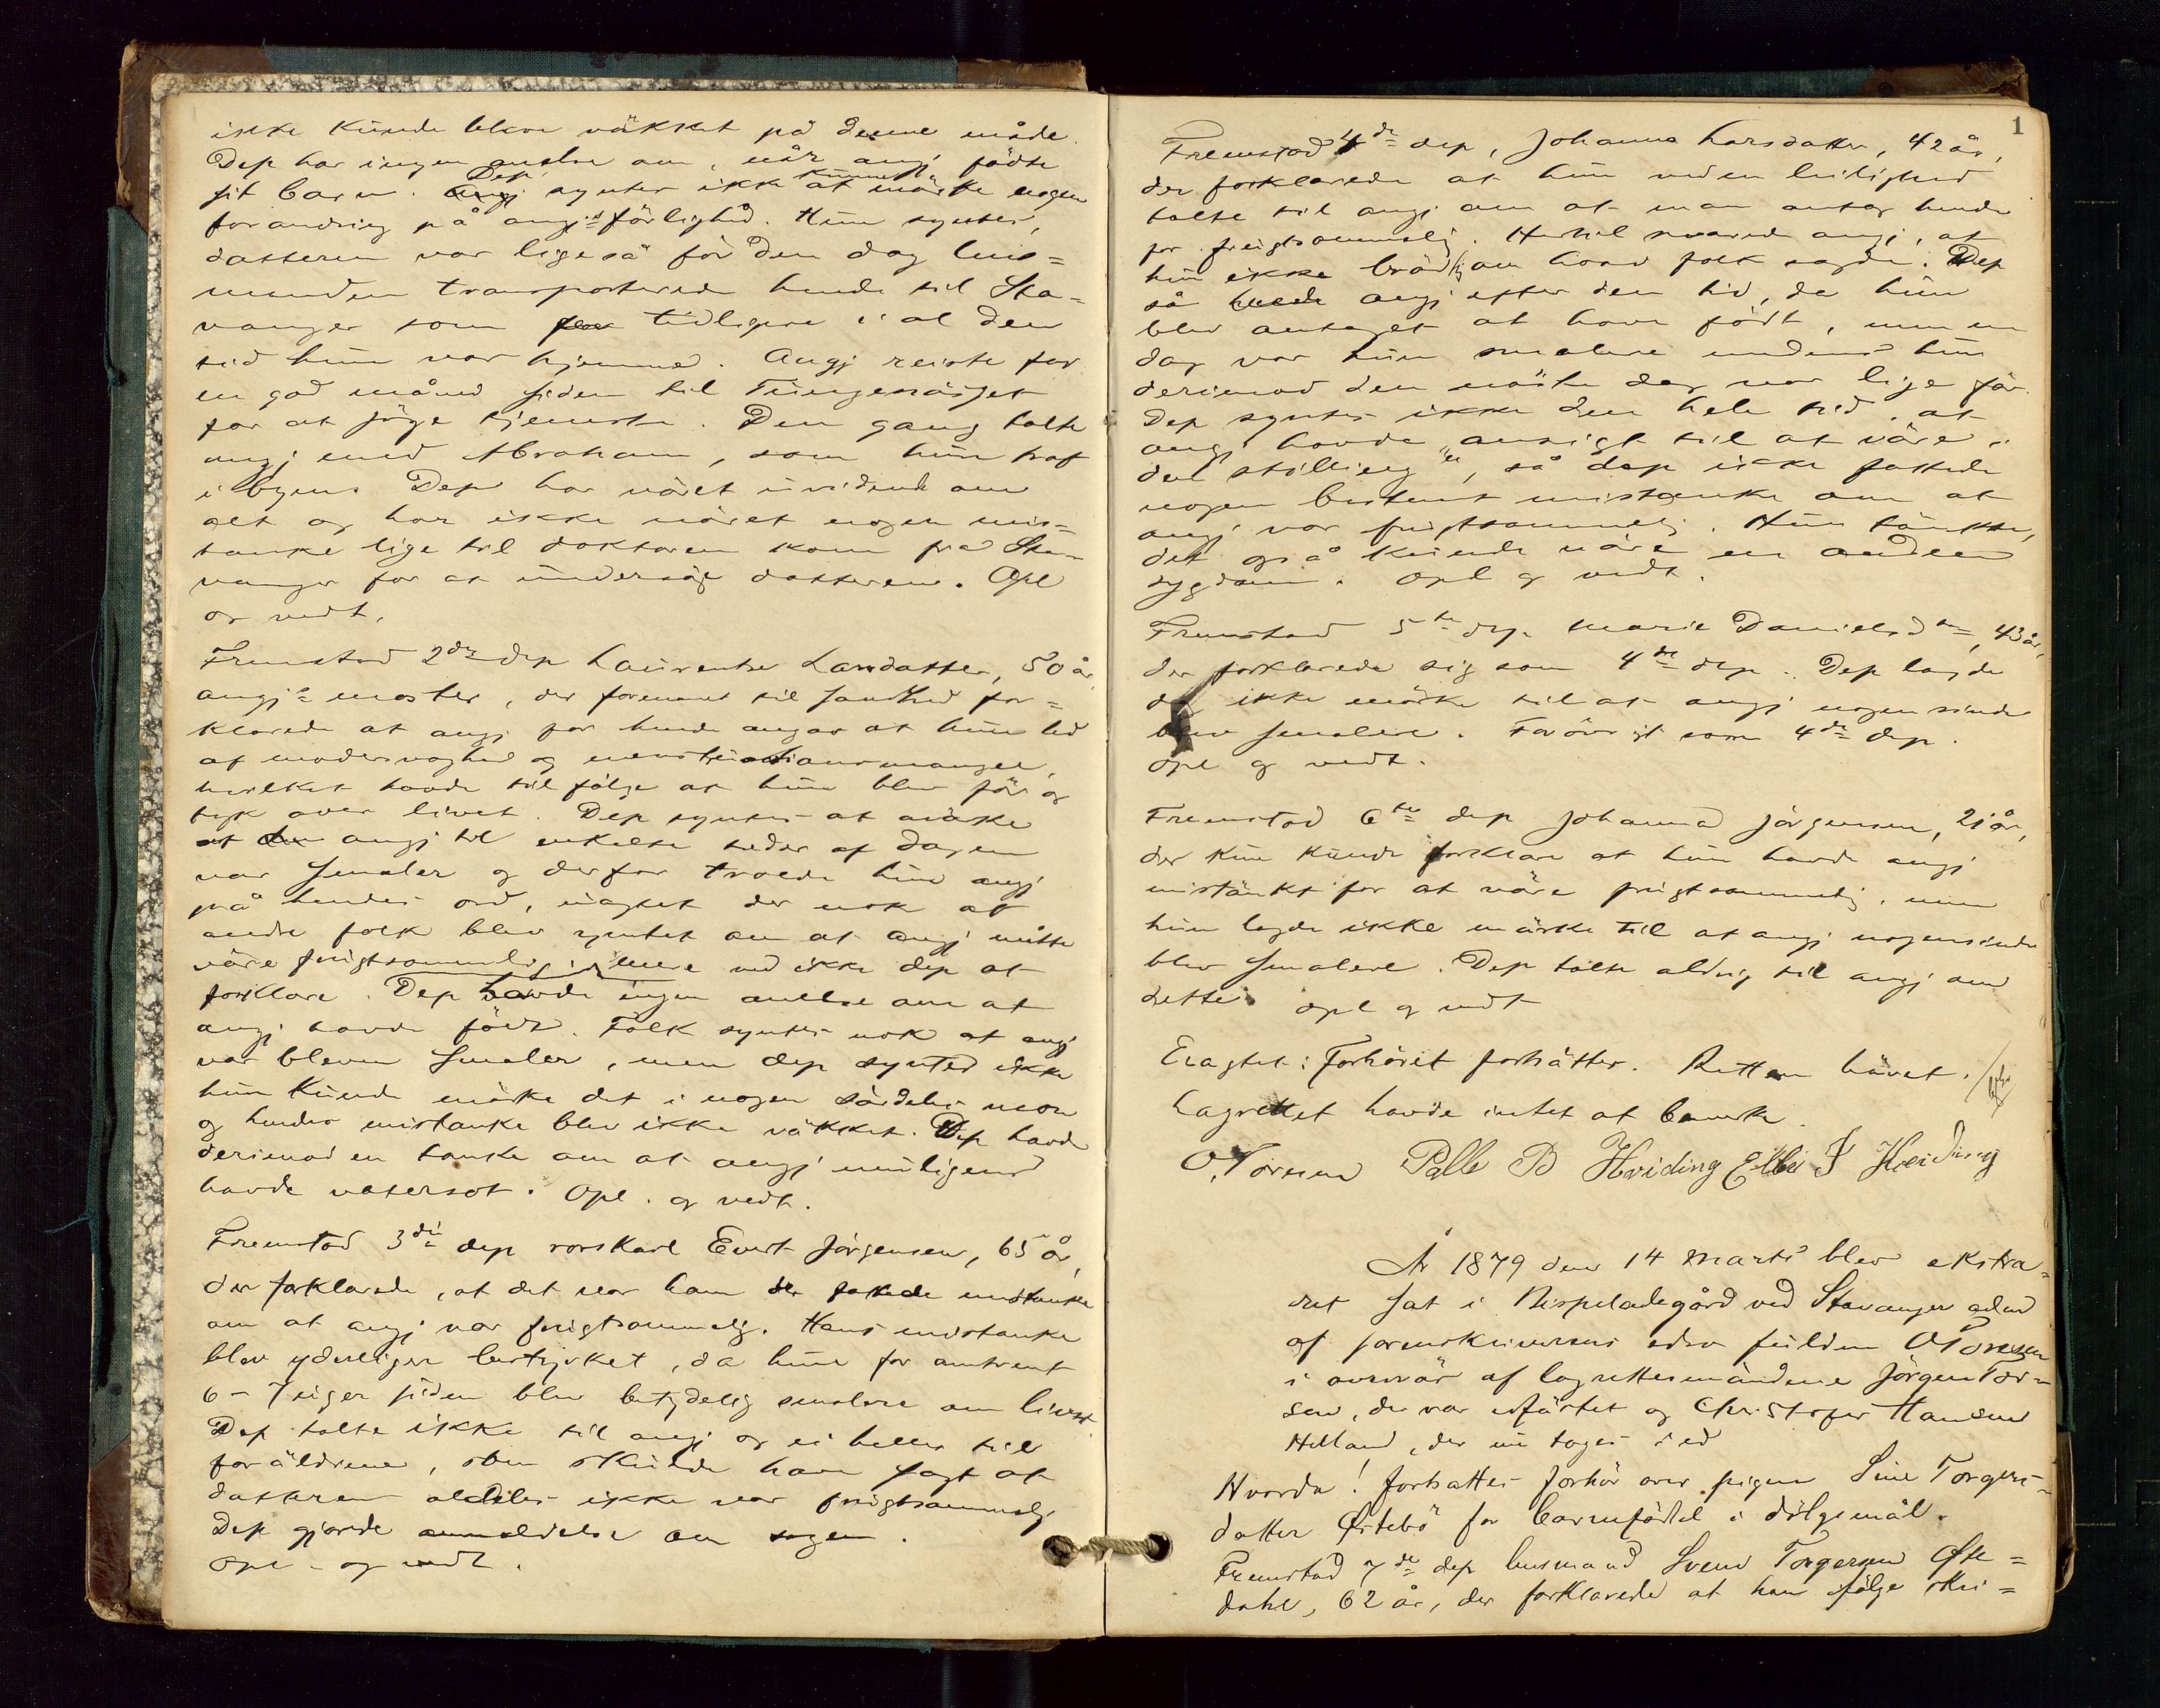 ikke kunde bleve väkket på denne måde.
Dep har ingen anelse om, når angj födte
sit barn. Dep syntes ikke at kunne märke nogen
forandring på angjs förlighed. Hun syntes,
datteren var ligeså för den dag lens=
manden transporterede hende til Sta=
vanger som tidligere i al den
tid hun var hjemme. Angj reiste for
en god måned siden til Tungenässet
for at söge tjeneste. Den gang talte
angj med Abraham, som hun traf
i byen. Dep har väret uvidende om
alt og har ikke näret nogen mis=
tanke lige til doktoren kom fra Sta=
vanger for at undersöge datteren. Opl
og vedt.
Fremstod 2den dep Laurentse Larsdatter, 50 år,
angjs moster, der formanet til sandhed for=
klarede at angj for hende angav at hun led
af modersvaghed og menstruationsmangel,
hvilket havde til fölge at hun blev för og
tyk over livet. Dep syntes at märke
at angj til enkelte tider af dagen
var smaler og derfor troede hun angj
på hendes ord, uagtet der nok af
andre folk blev ymtet om at angj måtte
väre frugtsommelig; mere ved ikke dep at
forklare. Dep havde ingen anelse om at
angj havde födt. Folk syntes nok at angj
var bleven smaler, men dep syntes ikke
hun kunde märke det i nogen särdeles mon
og hendes mistanke blev ikke väkket. Dep havde
derimod en tanke om at angj muligens
havde vatersot. Opl. og vedt.
Fremstod 3die dep rorskarl Evert Jörgensen, 65 år,
der forklarede, at det var ham der fattede mistanke
om at angj var frugtsommelig. Hans mistanke
blev yderligere bestyrket, da hun for omtrent
6 - 7 uger siden blev betydelig smalere om livet.
Dep talte ikke til angj og ei heller til
foräldrene, som skulde have sagt at
datteren aldeles ikke var frugtsommelig
Dep gjorde anmeldelse om sagen.
Opl - og vedt.
1
Fremstod 4de dep, Johanna Larsdatter, 42 år,
der forklarede at hun ved en leilighed
talte til angj om at man antog hende
for frugtsommelig. Hertil svarede angj, at
hun ikke bröd sig om hvad folk sagde. Dep
så angj efter den tid, da hun
blev antaget at have födt, men en
dag var hun smalere medens hun
derimod den näste dag var lige för.
Dep syntes ikke den hele tid, at
angj havde "ansigt til at väre i
den stilling", så dep ikke fattede
nogen bestemt mistanke om at
angj var frugtsommelig. Hun tänkte,
det også kunde väre en anden
sygdom. Opl og vedt.
Fremstod 5te dep Marie Danielsdtr, 43 år,
der forklarede sig som 4de dep. Dep lagde
dog ikke märke til at angj nogensinde
blev smalere. Forövrigt som 4de dep.
Opl og vedt.
Fremstod 6te dep Johanna Jörgensen, 21 år,
der kun kunde forklare at hun havde angj
mistänkt for at väre frugtsommelig, men
hun lagde ikke märke til at angj nogensinde
blev smalere. Dep talte aldrig til angj om
dette. Opl og vedt
Eragtet: Forhöret fortsätter. Retten hävet.
Lagrettet havde intet at bemerke.
O. Törresen Palle B Hviding Elbe I Hviding
År 1879 den 14 marts blev ekstra=
ret sat i Bispeladegård ved Stavanger
af sorenskriverens edsv fuldm O Törresen
i overvär af lagrettesmändene Jörgen Tor=
sen, der var edfästet og Christofer Hansen
Helland, der nu toges i ed
Hvorda! fortsattes forhör over pigen Sine Torgers=
datter Östebö for barnefödsel i dölgsmål.
Fremstod 7de dep husmand Svend Torgersen Ofte=
dahl, 62 år, der forklarede at han ifölge skri=